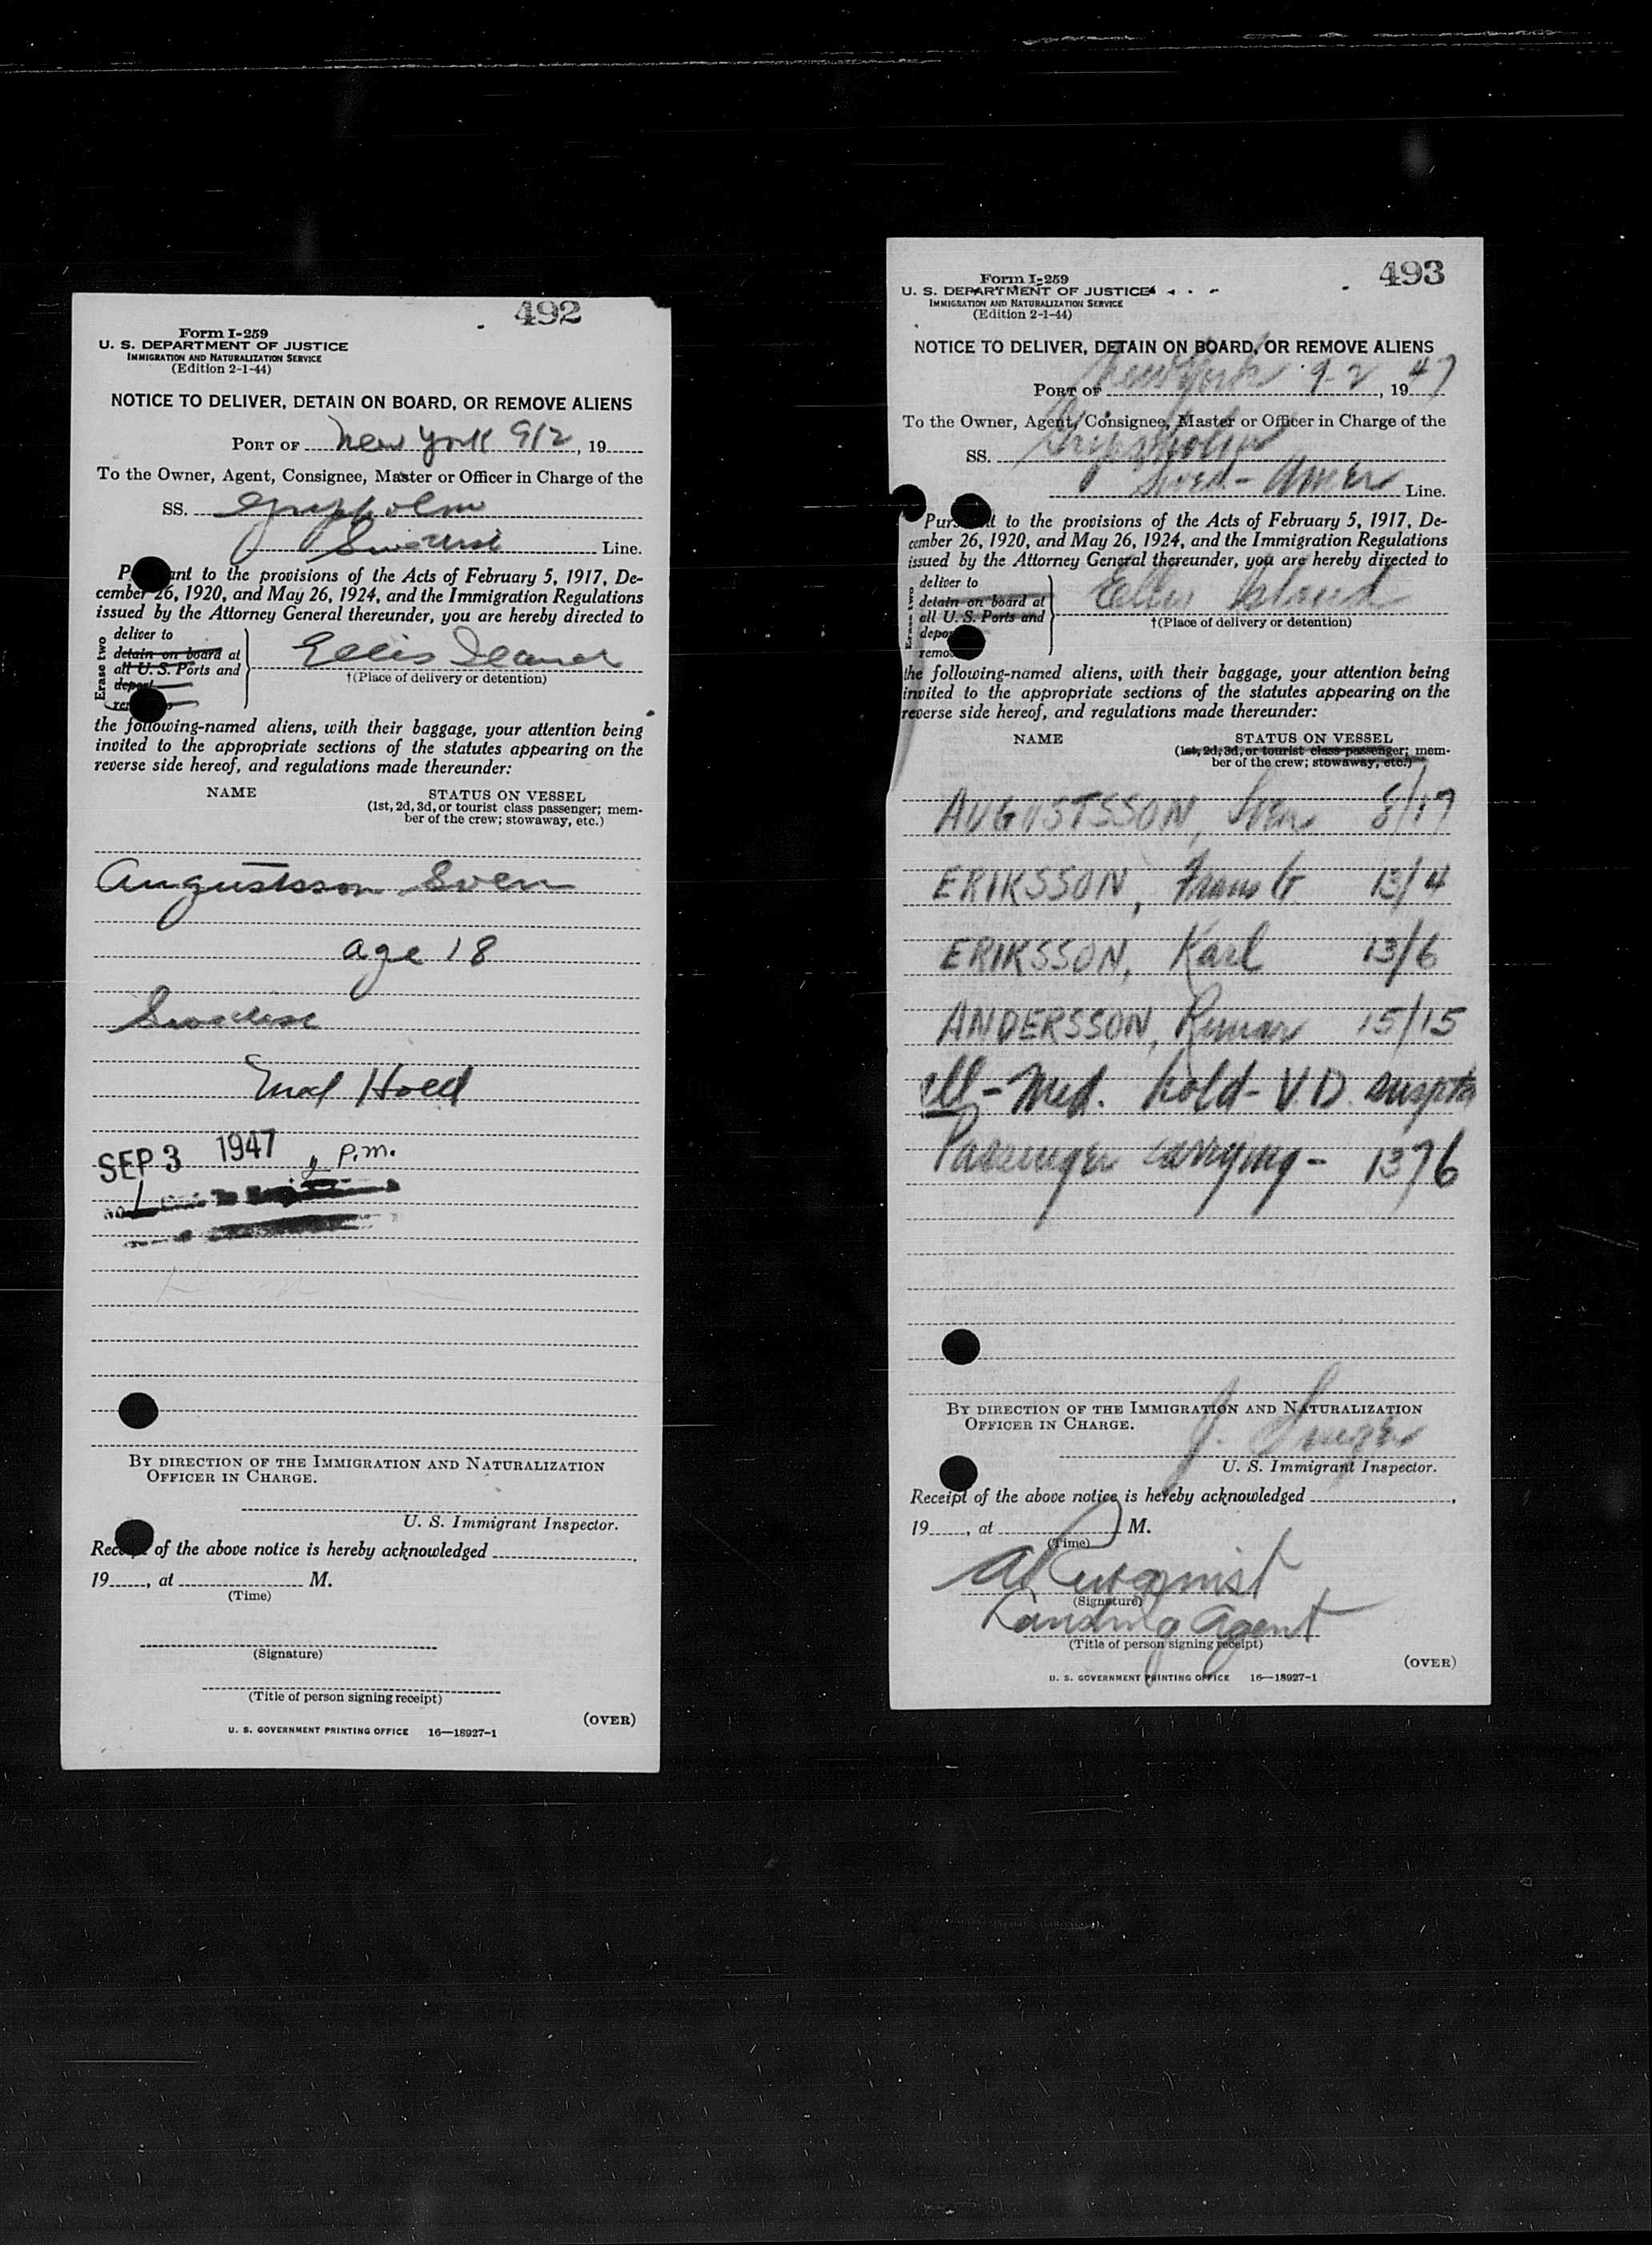 492
Form I-259
U. S. DEPARTMENT OF JUSTICE
IMMIGRATION AND NATURALIZATION SERVICE
(Edition 2-1-44)
NOTICE TO DELIVER, DETAIN ON BOARD, OR REMOVE ALIENS
PORT OF New York 9/2, 19
To the Owner, Agent, Consignee, Master or Officer in Charge of the
SS. Gripsholm
Line.
ant to the provisions of the Acts of February 5, 1917, De-
cember 26, 1920, and May 26, 1924, and the Immigration Regulations
issued by the Attorney General thereunder, you are hereby directed to
Erase two
deliver to
detain on board at
all U. S. Ports and
deport
Ellis Island
†(Place of delivery or detention)
the following-named aliens, with their baggage, your attention being
invited to the appropriate sections of the statutes appearing on the
reverse side hereof, and regulations made thereunder:
NAME STATUS ON VESSEL
(1st, 2d, 3d, or tourist class passenger; mem-
ber of the crew; stowaway, etc.)
Augustsson Sven
age 18
Hold
SEP 3 1947 P.M.
BY DIRECTION OF THE IMMIGRATION AND NATURALIZATION
OFFICER IN CHARGE.
U. S. Immigrant Inspector.
of the above notice is hereby acknowledged
19, at M.
(Time)
(Signature)
(Title of person signing receipt)
(OVER)
U. S. GOVERNMENT PRINTING OFFICE 16—18927-1
493
Form I-259
U. S. DEPARTMENT OF JUSTICE
IMMIGRATION AND NATURALIZATION SERVICE
(Edition 2-1-44)
NOTICE TO DELIVER, DETAIN ON BOARD, OR REMOVE ALIENS
PORT OF New York 9-2, 1947
To the Owner, Agent, Consignee, Master or Officer in Charge of the
SS. Gripsholm
Swed-Amer Line.
to the provisions of the Acts of February 5, 1917, De-
cember 26, 1920, and May 26, 1924, and the Immigration Regulations
issued by the Attorney General thereunder, you are hereby directed to
Erase two
deliver to
detain on board at
all U. S. Ports and
Ellis Island
†(Place of delivery or detention)
the following-named aliens, with their baggage, your attention being
invited to the appropriate sections of the statutes appearing on the
reverse side hereof, and regulations made thereunder:
NAME STATUS ON VESSEL
(1st, 2d, 3d, or tourist class passenger; mem-
ber of the crew; stowaway, etc.)
AUGUSTSSON, Sven 8/17
ERIKSSON, Frans G. 13/4
ERIKSSON, Karl 13/6
ANDERSSON, 15/15
all - Med. hold - V.D.
Passenger carrying - 1376
BY DIRECTION OF THE IMMIGRATION AND NATURALIZATION
OFFICER IN CHARGE.
U. S. Immigrant Inspector.
Receipt of the above notice is hereby acknowledged
19, at M.
(Time)
(Signature)
Landing Agent
(Title of person signing receipt)
(OVER)
U. S. GOVERNMENT PRINTING OFFICE 16—18927-1